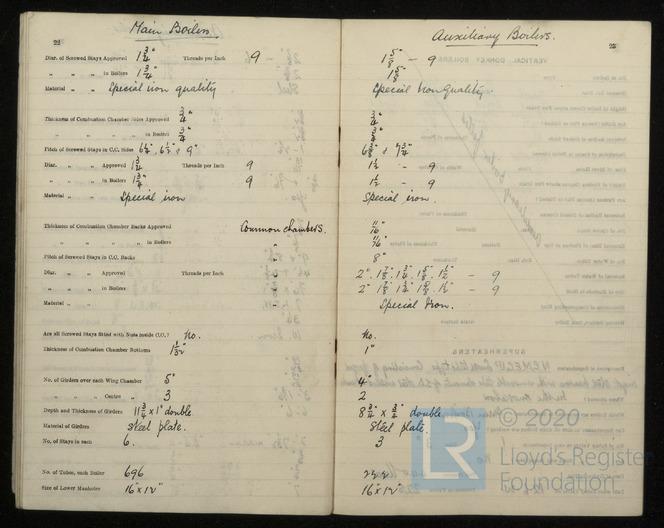 22
Main Boilers.
Diar. of Screwed Stays Approved 1 3/4" Threads per Inch 9
„ „ „ in Boilers 1 3/4"
Material „ „ Special iron quality
Thickness of Combustion Chamber Sides Approved 3/4"
„ „ „ „ in Boilers 3/4"
Pitch of Screwed Stays in C.C. Sides
Diar. „ „ Approved 1 3/4" Threads per Inch 9
„ „ „ in Boilers 1 3/4" 9
Material „ „ Special iron
Thickness of Combustion Chamber Backs Approved Common chambers.
„ „ „ „ in Boilers "
Pitch of Screwed Stays in C.C. Backs "
Diar. „ „ Approved Threads per Inch "
„ „ „ in Boilers "
Material „ „ "
Are all Screwed Stays fitted with Nuts inside C.C.? No.
Thickness of Combustion Chamber Bottoms 1 1/32"
No. of Girders over each Wing Chamber 5
„ „ „ Centre „ 3
Depth and Thickness of Girders 11 3/4" x 1" double
Material of Girders Steel plate.
No. of Stays in each 6.
No. of Tubes, each Boiler 696
Size of Lower Manholes 16" x 12"
Auxiliary Boilers.
1 5/8" - 9
1 5/8"
Special Iron Quality
3/4"
3/4"
1 1/2 - 9
1 1/2 - 9
Special iron.
11/16"
11/16"
8"
2". 1 7/8". 1 3/4". 1 5/8". 1 1/2" - 9
2" 1 7/8" 1 3/4" 1 5/8" 1 1/2" - 9
Special Iron.
No.
1"
4
2
8 3/4" x 3/4" double
Steel plate.
3 3
16" x 12"
© 2020
Lloyd's Register
Foundation